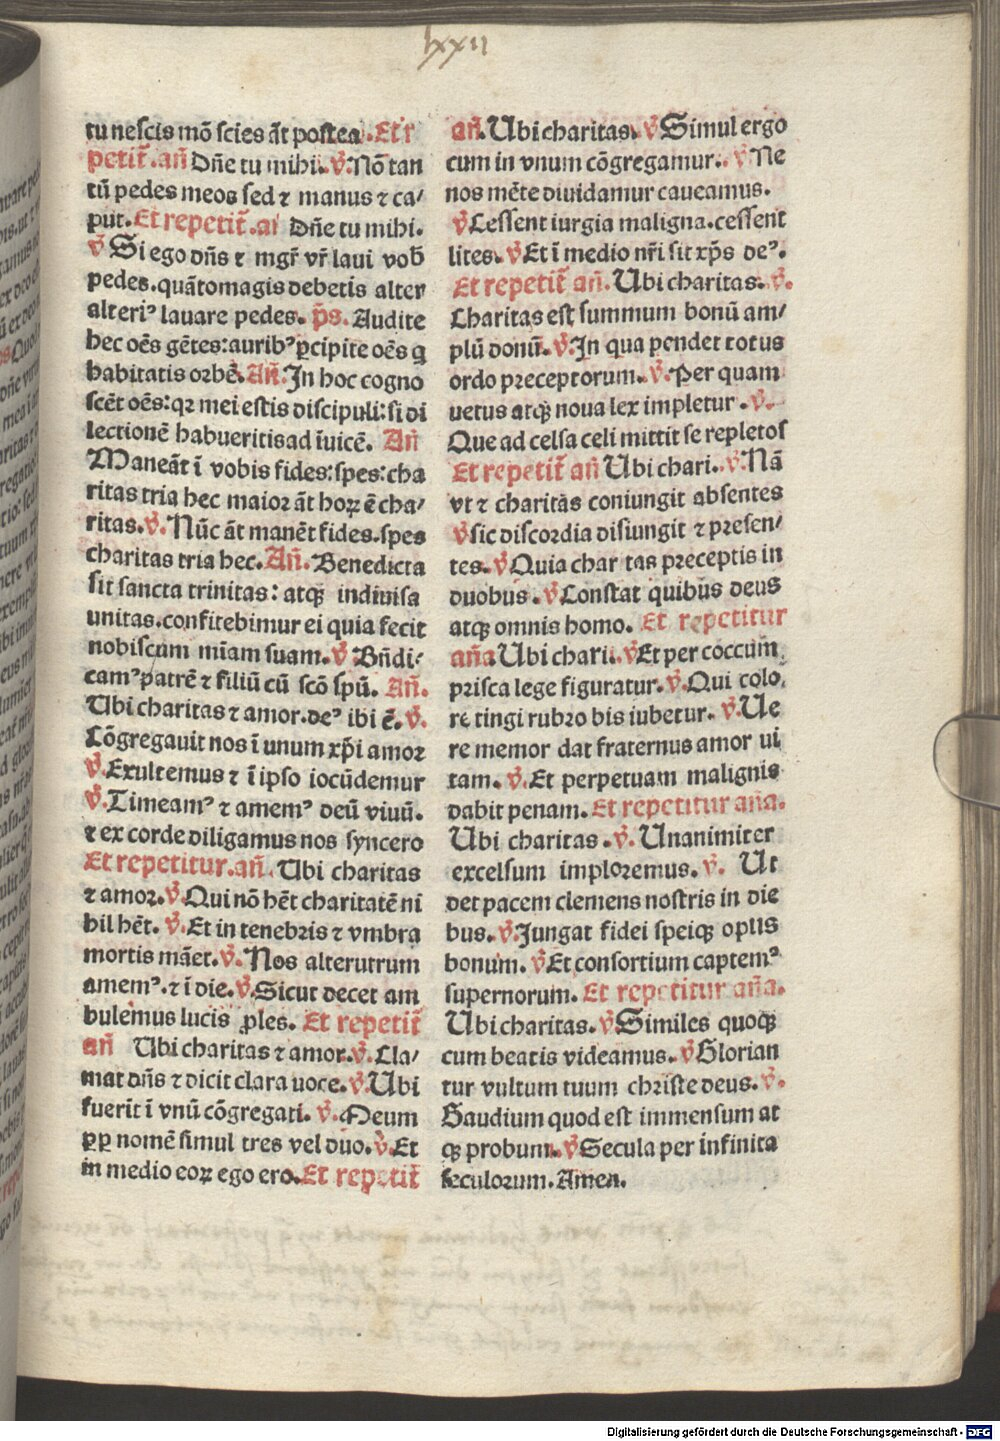 lxxii
tu nescis mõ scies ãt postea. Et r
petit̃. añ Dñe tu mihi. v̾. Nõ tan
tũ pedes meos sed ⁊ manus ⁊ ca/
put. Et repetit̃. añ Dñe tu mihi.
v̾ Si ego dñs ⁊ mgr̃ vr̃ laui vob̃
pedes. quãtomagis debetis alter
alteriꝰ lauare pedes. p̃s. Audite
hec oẽs gẽtes: auribꝰ ꝑcipite oẽs q
habitatis orbẽ. Añ. In hoc cogno
scẽt oẽs: qꝛ mei estis discipuli: si di
lectionẽ habueritis ad ĩuicẽ. Añ
Maneãt ĩ vobis fides: spes: cha
ritas tria hec maior ãt hoꝝ ẽ cha/
ritas. v̾. Nũc ãt manẽt fides. spes
charitas tria hec. Añ. Benedicta
sit sancta trinitas: atqꝫ indiuisa
unitas. confitebimur ei quia fecit
nobiscum miam suam. v̾ Bñdi/
camꝰ patrẽ ⁊ filiũ cũ scõ spũ. Añ.
Ubi charitas ⁊ amor. deꝰ ibi ẽ. v̾.
Cõgregauit nos ĩ unum xp̃i amor
v̾. Exultemus ⁊ ĩ ipso iocũdemur
v̾. Timeamꝰ ⁊ amemꝰ deũ viuũ.
⁊ ex corde diligamus nos syncero
Et repetitur. añ. Ubi charitas
⁊ amor. v̾. Qui nõ hẽt charitatẽ ni
hil hẽt. v̾. Et in tenebris ⁊ vmbra
mortis mãet. v̾. Nos alterutrum
amemꝰ. ⁊ ĩ die. v̾. Sicut decet am
bulemus lucis ꝓles. Et repetit̃
añ Ubi charitas ⁊ amor. v̾. Cla/
mat dñs ⁊ dicit clara uoce. v̾. Ubi
fuerit ĩ vnũ cõgregati. v̾. Meum
ꝓꝑ nomẽ simul tres vel duo. v̾. Et
in medio eoꝝ ego ero. Et repetit̃
añ. Ubi charitas. v̾ Simul ergo
cum in vnum cõgregamur. v̾. Ne
nos mẽte diuidamur caueamus.
v̾ Cessent iurgia maligna. cessent
lites. v̾ Et ĩ medio nr̃i sit xp̃s deꝰ.
Et repetit̃ añ. Ubi charitas. v̾.
Charitas est summum bonũ am/
plũ donũ. v̾. In qua pendet totus
ordo preceptorum. v̾. Per quam
uetus atqꝫ noua lex impletur. v̾.
Que ad celsa celi mittit se repletos
Et repetit̃ añ Ubi chari. v̾. Nã
vt ⁊ charitas coniungit absentes
v̾ sic discordia disiungit ⁊ presen/
tes. v̾ Quia char tas preceptis in
duobus. v̾ Constat quibus deus
atqꝫ omnis homo. Et repetitur
aña Ubi chari. v̾ Et per coccum
prisca lege figuratur. v̾. Qui colo,
re tingi rubro bis iubetur. v̾. Ue
re memor dat fraternus amor ui
tam. v̾. Et perpetuam malignis
dabit penam. Et repetitur aña.
Ubi charitas. v̾. Unanimiter
excelsum imploremus. v̾. Ut
det pacem clemens nostris in die
bus. v̾. Jungat fidei speiqꝫ opus
bonum. v̾ Et consortium captemꝰ
supernorum. Et repetitur aña.
Ubi charitas. v̾ Similes quoqꝫ
cum beatis videamus. v̾ Glorian
tur vultum tuum christe deus. v̾.
Gaudium quod est immensum at
qꝫ probum. v̾ Secula per infinita
seculorum. Amen.
Digitalisierung gefördert durch die Deutsche Forschungsgemeinschaft - DFG